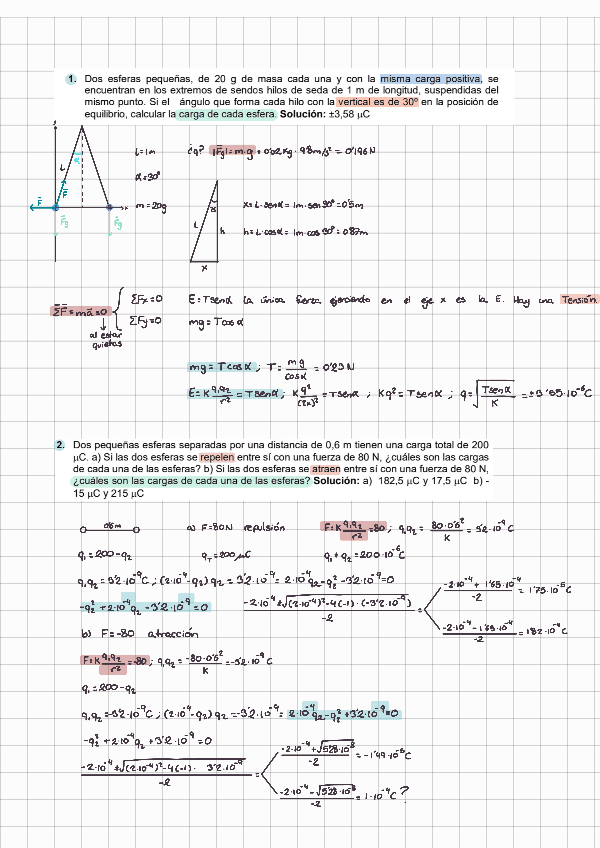 1. Dos esferas pequeñas, de 20 g de masa cada una y con la misma carga positiva, se
encuentran en los extremos de sendos hilos de seda de 1 m de longitud, suspendidas del
mismo punto. Si el ángulo que forma cada hilo con la vertical es de 30º en la posición de
equilibrio, calcular la carga de cada esfera. Solución: ±3,58 μC
L=1m
¿q? |Fg|=m·g = 0'02 Kg · 9'8 m/s² = 0'196 N
α=30º
m=20g
x=L·senα = 1m·sen30º=0'5m
h=L·cosα = 1m·cos30º=0'87m
L
α
h
x
F
Fg
Fg
ΣF=ma=0
al estar
quietas
ΣFx=0 E=Tsenα la única fuerza ejerciendo en el eje x es la E. Hay una Tensión
ΣFy=0 mg=Tcosα
mg=Tcosα ; T= mg/cosα = 0'23 N
E=K q₁q₂/r² = Tsenα; K q²/(2x)² = Tsenα ; Kq²=Tsenα ; q=√(Tsenα/K) =
2. Dos pequeñas esferas separadas por una distancia de 0,6 m tienen una carga total de 200
μC. a) Si las dos esferas se repelen entre sí con una fuerza de 80 N, ¿cuáles son las cargas
de cada una de las esferas? b) Si las dos esferas se atraen entre sí con una fuerza de 80 N,
¿cuáles son las cargas de cada una de las esferas? Solución: a) 182,5 μC y 17,5 μC b) -
15 μC y 215 μC
0'6m a) F=80N repulsión F=K q₁q₂/r² =80; q₁q₂ = 80·0'6²/K = 3'2·10⁻⁹C
q₁=200-q₂ qT=200μC q₁+q₂=200·10⁻⁶C
q₁q₂=3'2·10⁻⁹C ; (2·10⁻⁴-q₂)q₂ = 3'2·10⁻⁹ = 2·10⁻⁴q₂-q₂²-3'2·10⁻⁹=0
-q₂²+2·10⁻⁴q₂-3'2·10⁻⁹=0
-2·10⁻⁴±√((2·10⁻⁴)²-4(-1)·(-3'2·10⁻⁹))/-2 =
-2·10⁻⁴+1'65·10⁻⁴/-2 = 1'75·10⁻⁵C
-2·10⁻⁴-1'65·10⁻⁴/-2 = 1'82·10⁻⁴C
b) F=-80 atracción
F=K q₁q₂/r² =-80; q₁q₂= -80·0'6²/K =-3'2·10⁻⁹C
q₁=200-q₂
q₁q₂=-3'2·10⁻⁹C ; (2·10⁻⁴-q₂)q₂ =-3'2·10⁻⁹= 2·10⁻⁴q₂-q₂²+3'2·10⁻⁹=0
-q₂²+2·10⁻⁴q₂+3'2·10⁻⁹=0
-2·10⁻⁴±√((2·10⁻⁴)²-4(-1)·3'2·10⁻⁹)/-2 =
-2·10⁻⁴+√5'28·10⁻⁸/-2 =-1'49·10⁻⁵C
-2·10⁻⁴-√5'28·10⁻⁸/-2 = 1·10⁻⁴C?